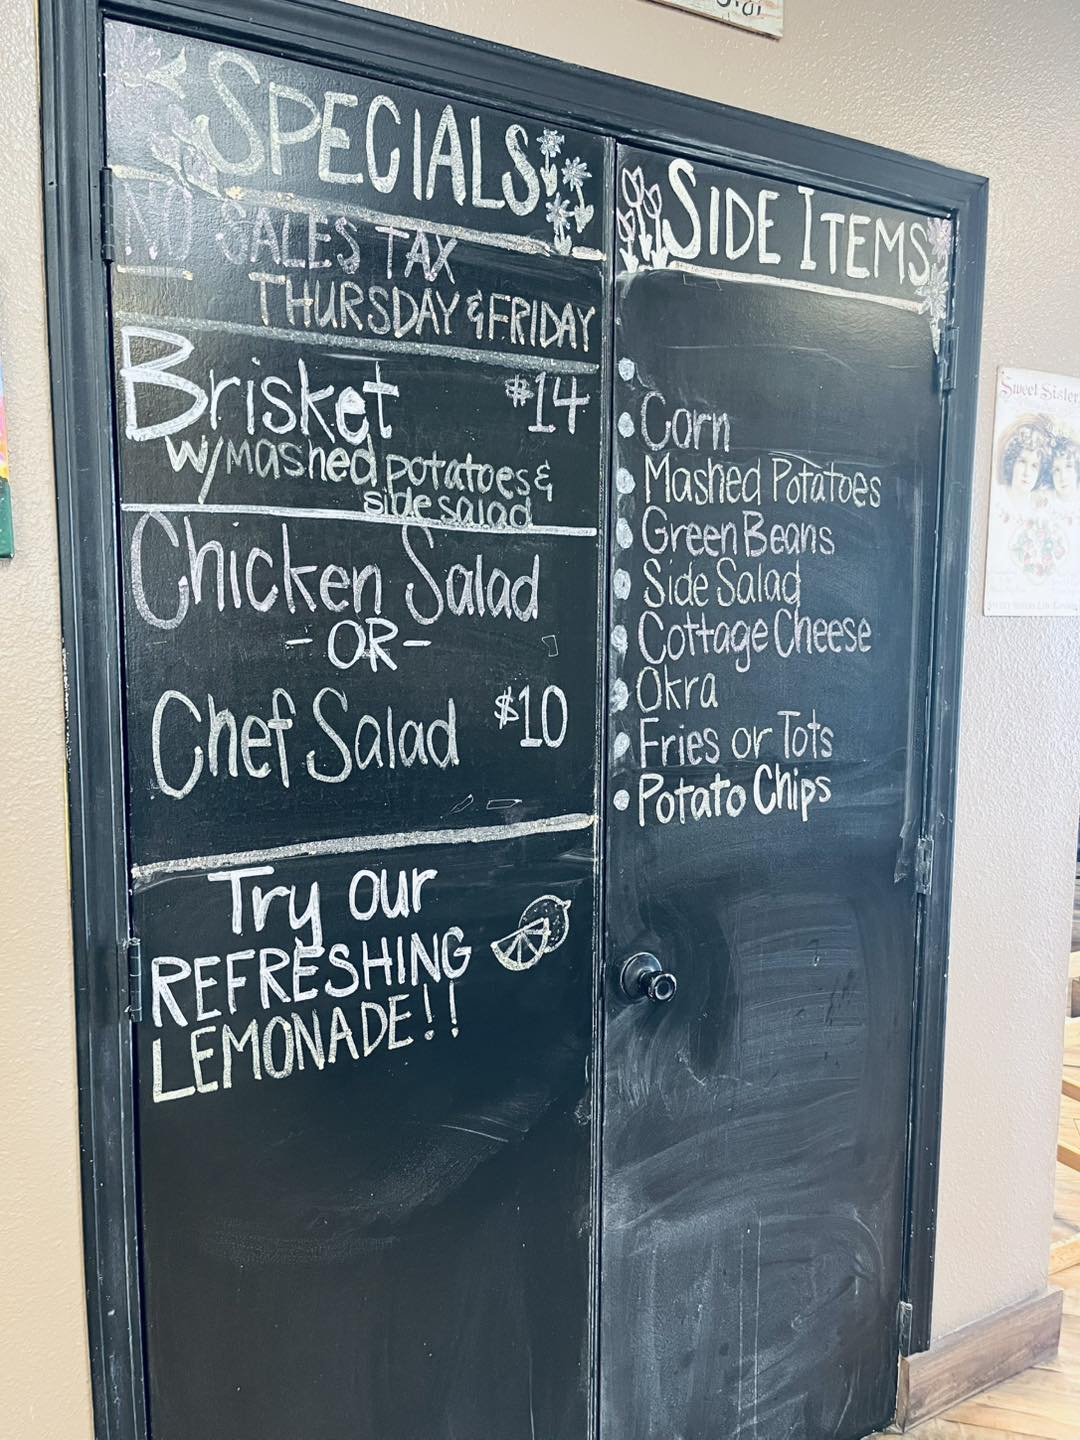 SPECIALS
NO SALES TAX
THURSDAY & FRIDAY
Brisket $14
w/mashed potatoes &
side salad
Chicken Salad
- OR -
Chef Salad $10
Try our
REFRESHING
LEMONADE!!
SIDE ITEMS
Corn
Mashed Potatoes
Green Beans
Side Salad
Cottage Cheese
Okra
Fries or Tots
Potato Chips
Sweet Sister